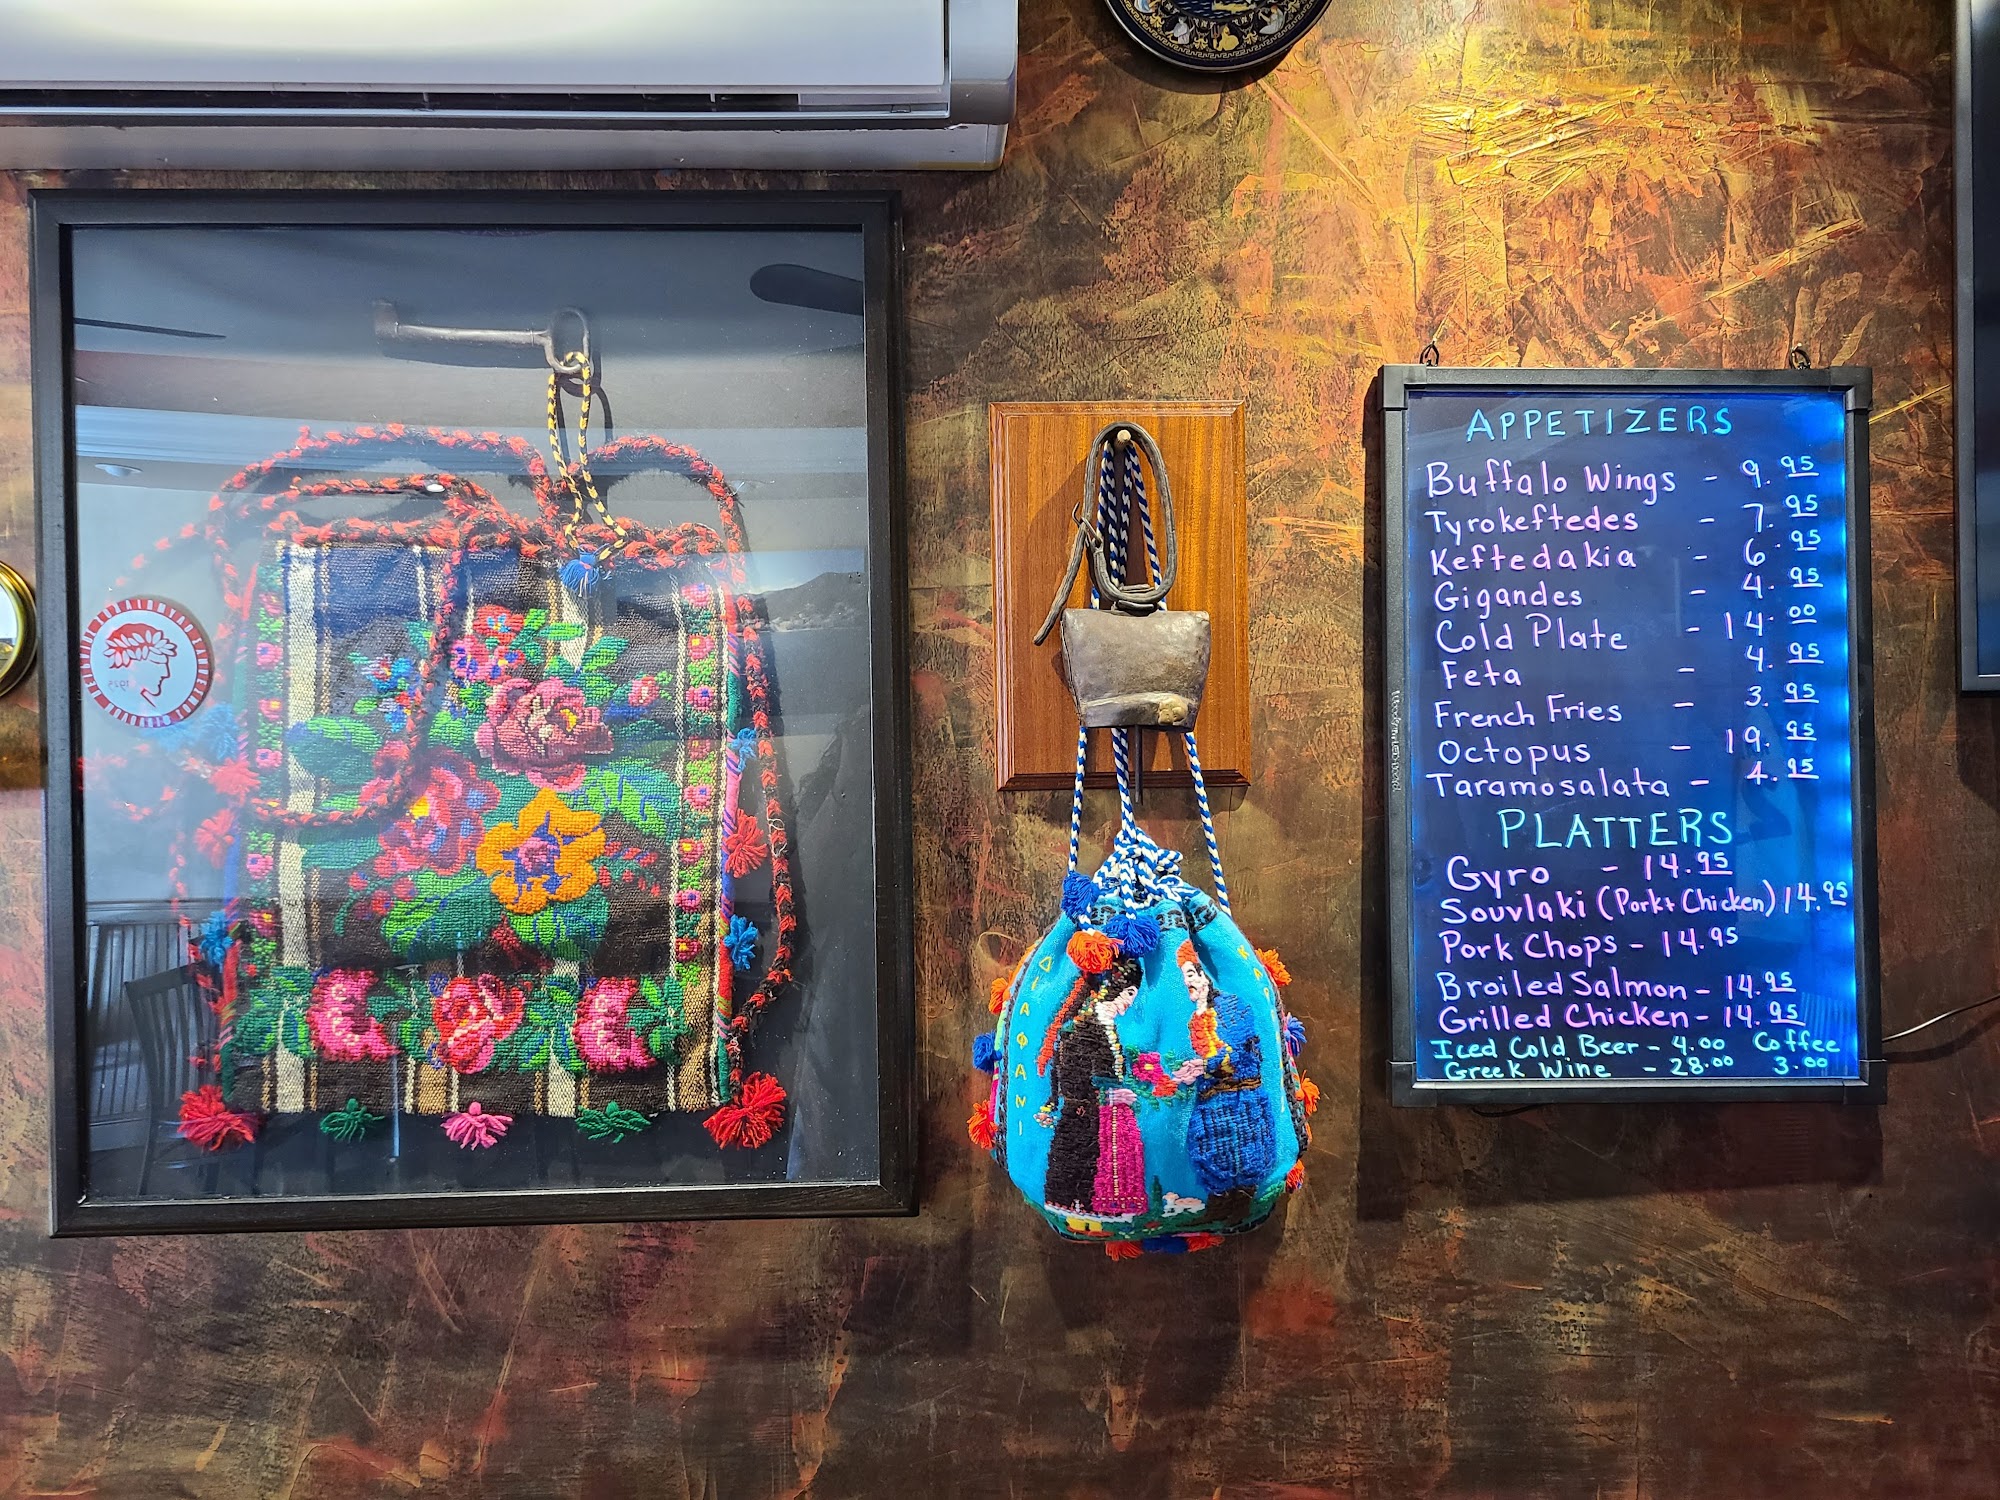 APPETIZERS
Buffalo Wings - 9.95
Tyrokeftedes - 7.95
Keftedakia - 6.95
Gigandes - 4.95
Cold Plate - 14.00
Feta - 4.95
French Fries - 3.95
Octopus - 19.95
Taramosalata - 4.95
PLATTERS
Gyro - 14.95
Souvlaki (Pork + Chicken) 14.95
Pork Chops - 14.95
Broiled Salmon - 14.95
Grilled Chicken - 14.95
Iced Cold Beer - 4.00 Coffee
Greek Wine - 28.00 3.00
ΔΙΑΦΑΝΙ